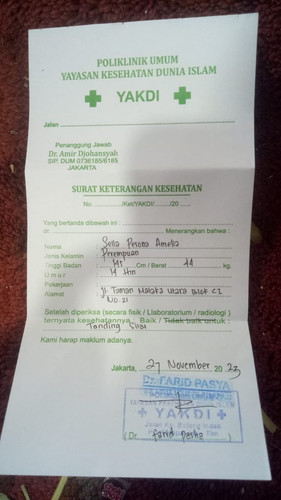 POLIKLINIK UMUM
YAYASAN KESEHATAN DUNIA ISLAM
YAKDI
Jalan
Penanggung Jawab
Dr. Amir Djohansyah
SIP. DUM 0736185/6185
JAKARTA
SURAT KETERANGAN KESEHATAN
No. /Ket/YAKDI/ /20
Yang bertanda dibawah ini :
or Menerangkan bahwa :
Nama Amelia
Jenis Kelamin : Perempuan
Tinggi Badan : Cm / Berat 44 kg.
U m u r : 14 thn
Pekerjaan :
Alamat : Jl. Taman Malaka Utara Blok C2
No. 21
Setelah diperiksa (secara fisik / Llaboratorium / radiologi )
ternyata kesehatannya Baik / Tidak baik untuk :
Tanding Silat
Kami harap maklum adanya.
Jakarta, 27 November 20 23
Dr. FARID PASYA
YAKDI
(Dr. Farid Pasya )